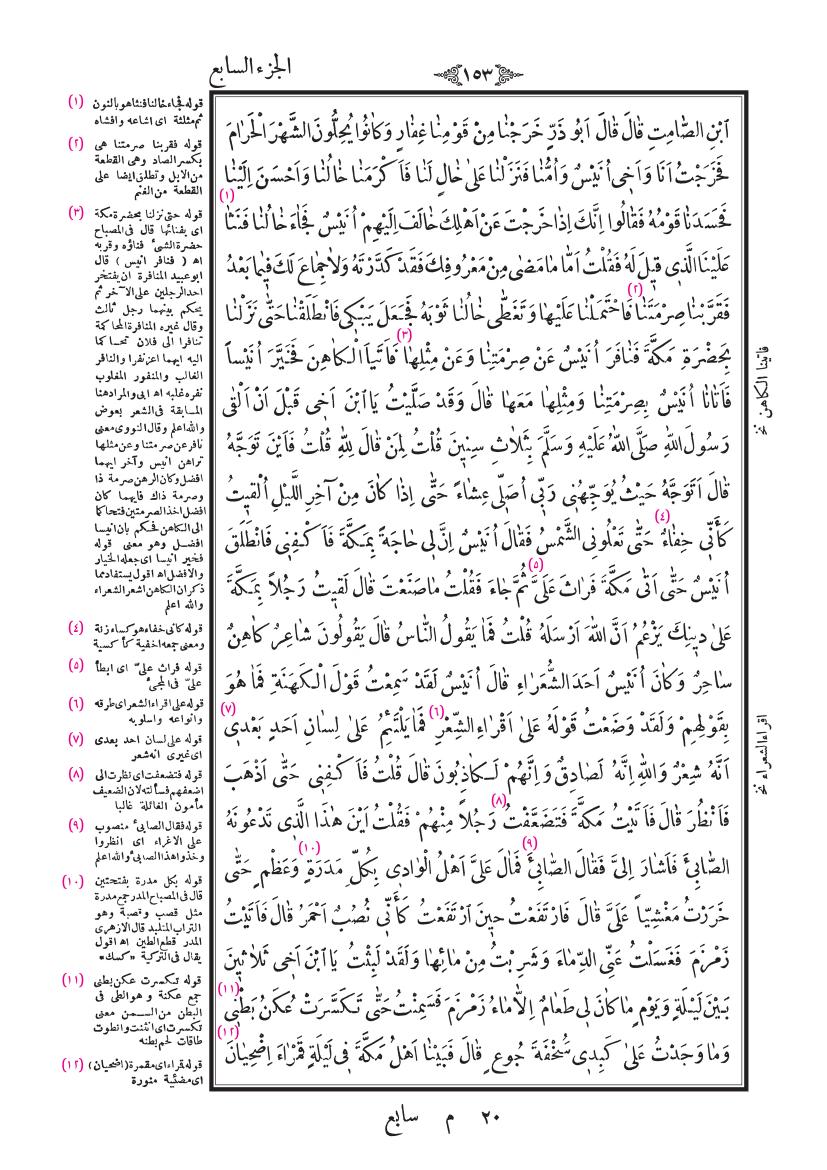 الجزء السابع
١٥٣
ابْنِ الصَّامِتِ قَالَ قَالَ اَبُو ذَرٍّ خَرَجْنَا مِنْ قَوْمِنَا غِفَارٍ وَكَانُوا يُحِلُّونَ الشَّهْرَ الْحَرَامَ
فَخَرَجْتُ اَنَا وَاَخِى اُنَيْسٌ وَاُمُّنَا فَنَزَلْنَا عَلَى خَالٍ لَنَا فَاَكْرَمَنَا خَالُنَا وَاَحْسَنَ اِلَيْنَا
فَحَسَدَنَا قَوْمُهُ فَقَالُوا اِنَّكَ اِذَا خَرَجْتَ عَنْ اَهْلِكَ خَالَفَ اِلَيْهِمْ اُنَيْسٌ فَجَاءَ خَالُنَا فَنَثَا (١)
عَلَيْنَا الَّذِى قِيلَ لَهُ فَقُلْتُ اَمَّا مَا مَضَى مِنْ مَعْرُوفِكَ فَقَدْ كَدَّرْتَهُ وَلَا جِمَاعَ لَكَ فِيمَا بَعْدُ
فَقَرَّبْنَا صِرْمَتَنَا (٢) فَاحْتَمَلْنَا عَلَيْهَا وَتَغَطَّى خَالُنَا ثَوْبَهُ فَجَعَلَ يَبْكِى فَانْطَلَقْنَا حَتَّى نَزَلْنَا
بِحَضْرَةِ مَكَّةَ فَنَافَرَ اُنَيْسٌ عَنْ صِرْمَتِنَا وَعَنْ مِثْلِهَا (٣) فَاَتَيَا الْكَاهِنَ فَخَيَّرَ اُنَيْساً
فَاَتَانَا اُنَيْسٌ بِصِرْمَتِنَا وَمِثْلِهَا مَعَهَا قَالَ وَقَدْ صَلَّيْتُ يَا ابْنَ اَخِى قَبْلَ اَنْ اَلْقَى
رَسُولَ اللهِ صَلَّى اللهُ عَلَيْهِ وَسَلَّمَ بِثَلَاثِ سِنِينَ قُلْتُ لِمَنْ قَالَ لِلهِ قُلْتُ فَاَيْنَ تَوَجَّهُ
قَالَ اَتَوَجَّهُ حَيْثُ يُوَجِّهُنِى رَبِّى اُصَلِّى عِشَاءً حَتَّى اِذَا كَانَ مِنْ آخِرِ اللَّيْلِ اُلْقِيتُ
كَاَنِّى خِفَاءٌ (٤) حَتَّى تَعْلُونِى الشَّمْسُ فَقَالَ اُنَيْسٌ اِنَّ لِى حَاجَةً بِمَكَّةَ فَاكْفِنِى فَانْطَلَقَ
اُنَيْسٌ حَتَّى اَتَى مَكَّةَ فَرَاثَ عَلَىَّ (٥) ثُمَّ جَاءَ فَقُلْتُ مَا صَنَعْتَ قَالَ لَقِيتُ رَجُلاً بِمَكَّةَ
عَلَى دِينِكَ يَزْعُمُ اَنَّ اللهَ اَرْسَلَهُ قُلْتُ فَمَا يَقُولُ النَّاسُ قَالَ يَقُولُونَ شَاعِرٌ كَاهِنٌ
سَاحِرٌ وَكَانَ اُنَيْسٌ اَحَدَ الشُّعَرَاءِ قَالَ اُنَيْسٌ لَقَدْ سَمِعْتُ قَوْلَ الْكَهَنَةِ فَمَا هُوَ
بِقَوْلِهِمْ وَلَقَدْ وَضَعْتُ قَوْلَهُ عَلَى اَقْرَاءِ الشِّعْرِ (٦) فَمَا يَلْتَئِمُ عَلَى لِسَانِ اَحَدٍ بَعْدِى (٧)
اَنَّهُ شِعْرٌ وَاللهِ اِنَّهُ لَصَادِقٌ وَاِنَّهُمْ لَكَاذِبُونَ قَالَ قُلْتُ فَاكْفِنِى حَتَّى اَذْهَبَ
فَاَنْظُرَ قَالَ فَاَتَيْتُ مَكَّةَ فَتَضَعَّفْتُ (٨) رَجُلاً مِنْهُمْ فَقُلْتُ اَيْنَ هٰذَا الَّذِى تَدْعُونَهُ
الصَّابِئَ فَاَشَارَ اِلَىَّ فَقَالَ الصَّابِئَ (٩) فَمَالَ عَلَىَّ اَهْلُ الْوَادِى بِكُلِّ مَدَرَةٍ (١٠) وَعَظْمٍ حَتَّى
خَرَرْتُ مَغْشِيّاً عَلَىَّ قَالَ فَارْتَفَعْتُ حِينَ ارْتَفَعْتُ كَاَنِّى نُصُبٌ اَحْمَرُ قَالَ فَاَتَيْتُ
زَمْزَمَ فَغَسَلْتُ عَنِّى الدِّمَاءَ وَشَرِبْتُ مِنْ مَائِهَا وَلَقَدْ لَبِثْتُ يَا ابْنَ اَخِى ثَلَاثِينَ
بَيْنَ لَيْلَةٍ وَيَوْمٍ مَا كَانَ لِى طَعَامٌ اِلَّا مَاءُ زَمْزَمَ فَسَمِنْتُ حَتَّى تَكَسَّرَتْ عُكَنُ بَطْنِى (١١)
وَمَا وَجَدْتُ عَلَى كَبِدِى سُخْفَةَ جُوعٍ قَالَ فَبَيْنَا اَهْلُ مَكَّةَ فِى لَيْلَةٍ قَمْرَاءَ اِضْحِيَانَ (١٢)
فاتينا الكاهن نخ
اقراء الشعراء نخ
(١) قوله فجاء خالنا فنثا هو بالنون
ثم مثلثة اى اشاعه وافشاه
(٢) قوله فقربنا صرمتنا هى
بكسر الصاد وهى القطعة
من الابل وتطلق ايضا على
القطعة من الغنم
(٣) قوله حتى نزلنا بحضرة مكة
اى بفنائها قال فى المصباح
حضرة الشئ فناؤه وقربه
اه ( فنافر انيس ) قال
ابو عبيد المنافرة ان يفتخر
احد الرجلين على الآخر ثم
يحكم بينهما رجل ثالث
وقال غيره المنافرة المحاكمة
تنافرا الى فلان تحاكما
اليه ايهما اعز نفرا والنافر
الغالب والمنفور المغلوب
نفره غلبه اه ابى والمراد هنا
المسابقة فى الشعر بعوض
والله اعلم وقال النووى معنى
نافر عن صرمتنا وعن مثلها
تراهن انيس وآخر ايهما
افضل وكان الرهن صرمة ذا
وصرمة ذاك فايهما كان
افضل اخذ الصرمتين فتحاكما
الى الكاهن فحكم بان انيسا
افضل وهو معنى قوله
فخير انيسا اى جعله الخيار
والافضل اه اقول يستفاد مما
ذكر ان الكاهن اشعر الشعراء
والله اعلم
(٤) قوله كانى خفاء هو كساء زنة
ومعنى جمعه اخفية كأكسية
(٥) قوله فراث علىّ اى ابطأ
علىّ فى المجئ
(٦) قوله على اقراء الشعر اى طرقه
وانواعه واسلوبه
(٧) قوله على لسان احد بعدى
اى غيرى انه شعر
(٨) قوله فتضعفت اى نظرت الى
اضعفهم فسألته لان الضعيف
مأمون الغائلة غالبا
(٩) قوله فقال الصابئ منصوب
على الاغراء اى انظروا
وخذوا هذا الصابئ والله اعلم
(١٠) قوله بكل مدرة بفتحتين
قال فى المصباح المدر جمع مدرة
مثل قصب وقصبة وهو
التراب المتلبد قال الازهرى
المدر قطع الطين اه اقول
يقال فى التركية «كسك»
(١١) قوله تكسرت عكن بطنى
جمع عكنة وهو الطى فى
البطن من السمن معنى
تكسرت اى انثنت وانطوت
طاقات لحم بطنه
(١٢) قوله قمراء اى مقمرة (اضحيان)
اى مضئية منورة
٢٠ م سابع